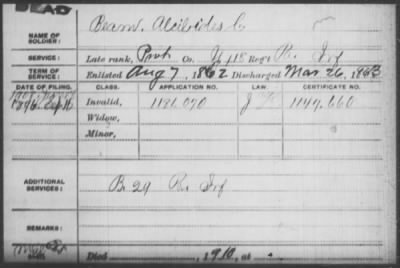 DEAD
NAME OF SOLDIER: Beam. Alcibiades C
SERVICE: Late rank, Prvt Co. Regt Inf
TERM OF SERVICE: Enlisted Aug 7, 1862 Discharged Mar 26, 1863
DATE OF FILING. CLASS. APPLICATION NO. LAW. CERTIFICATE NO.
Invalid, 1181.090 1149.660
Widow,
Minor,
ADDITIONAL SERVICES: B. 29 Inf
REMARKS:
Died 1910, at